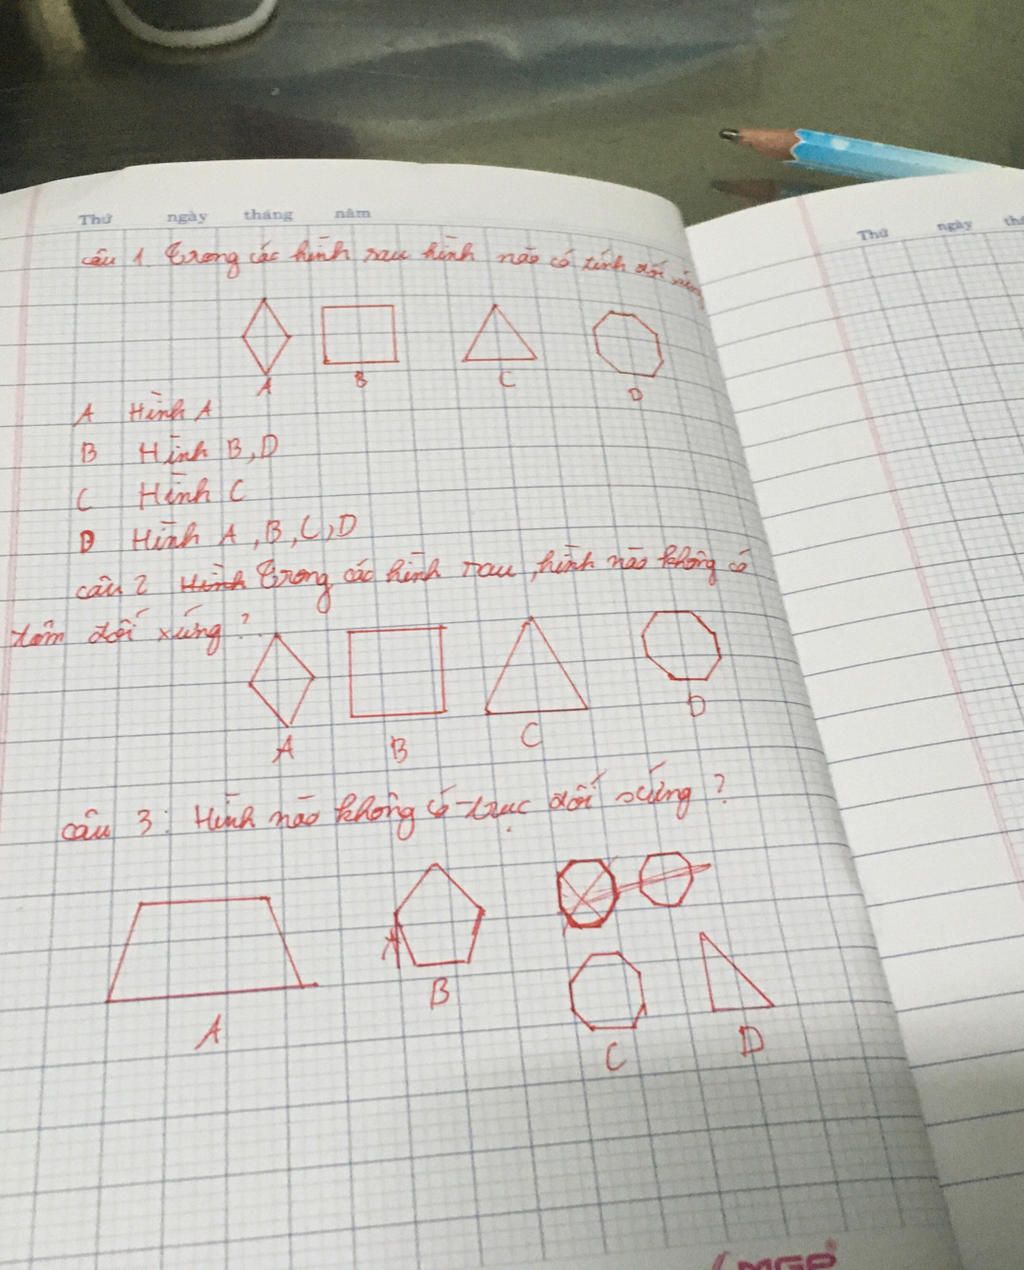 Thứ ngày tháng năm
câu 1. Trong các hình sau hình nào có tính đối xứng
A B C D
A Hình A
B Hình B, D
C Hình C
D Hình A, B, C, D
câu 2 Hình Trong các hình sau, hình nào không có
tâm đối xứng?
A B C D
câu 3: Hình nào không có trục đối xứng?
A B C D
Thứ ngày
MGP